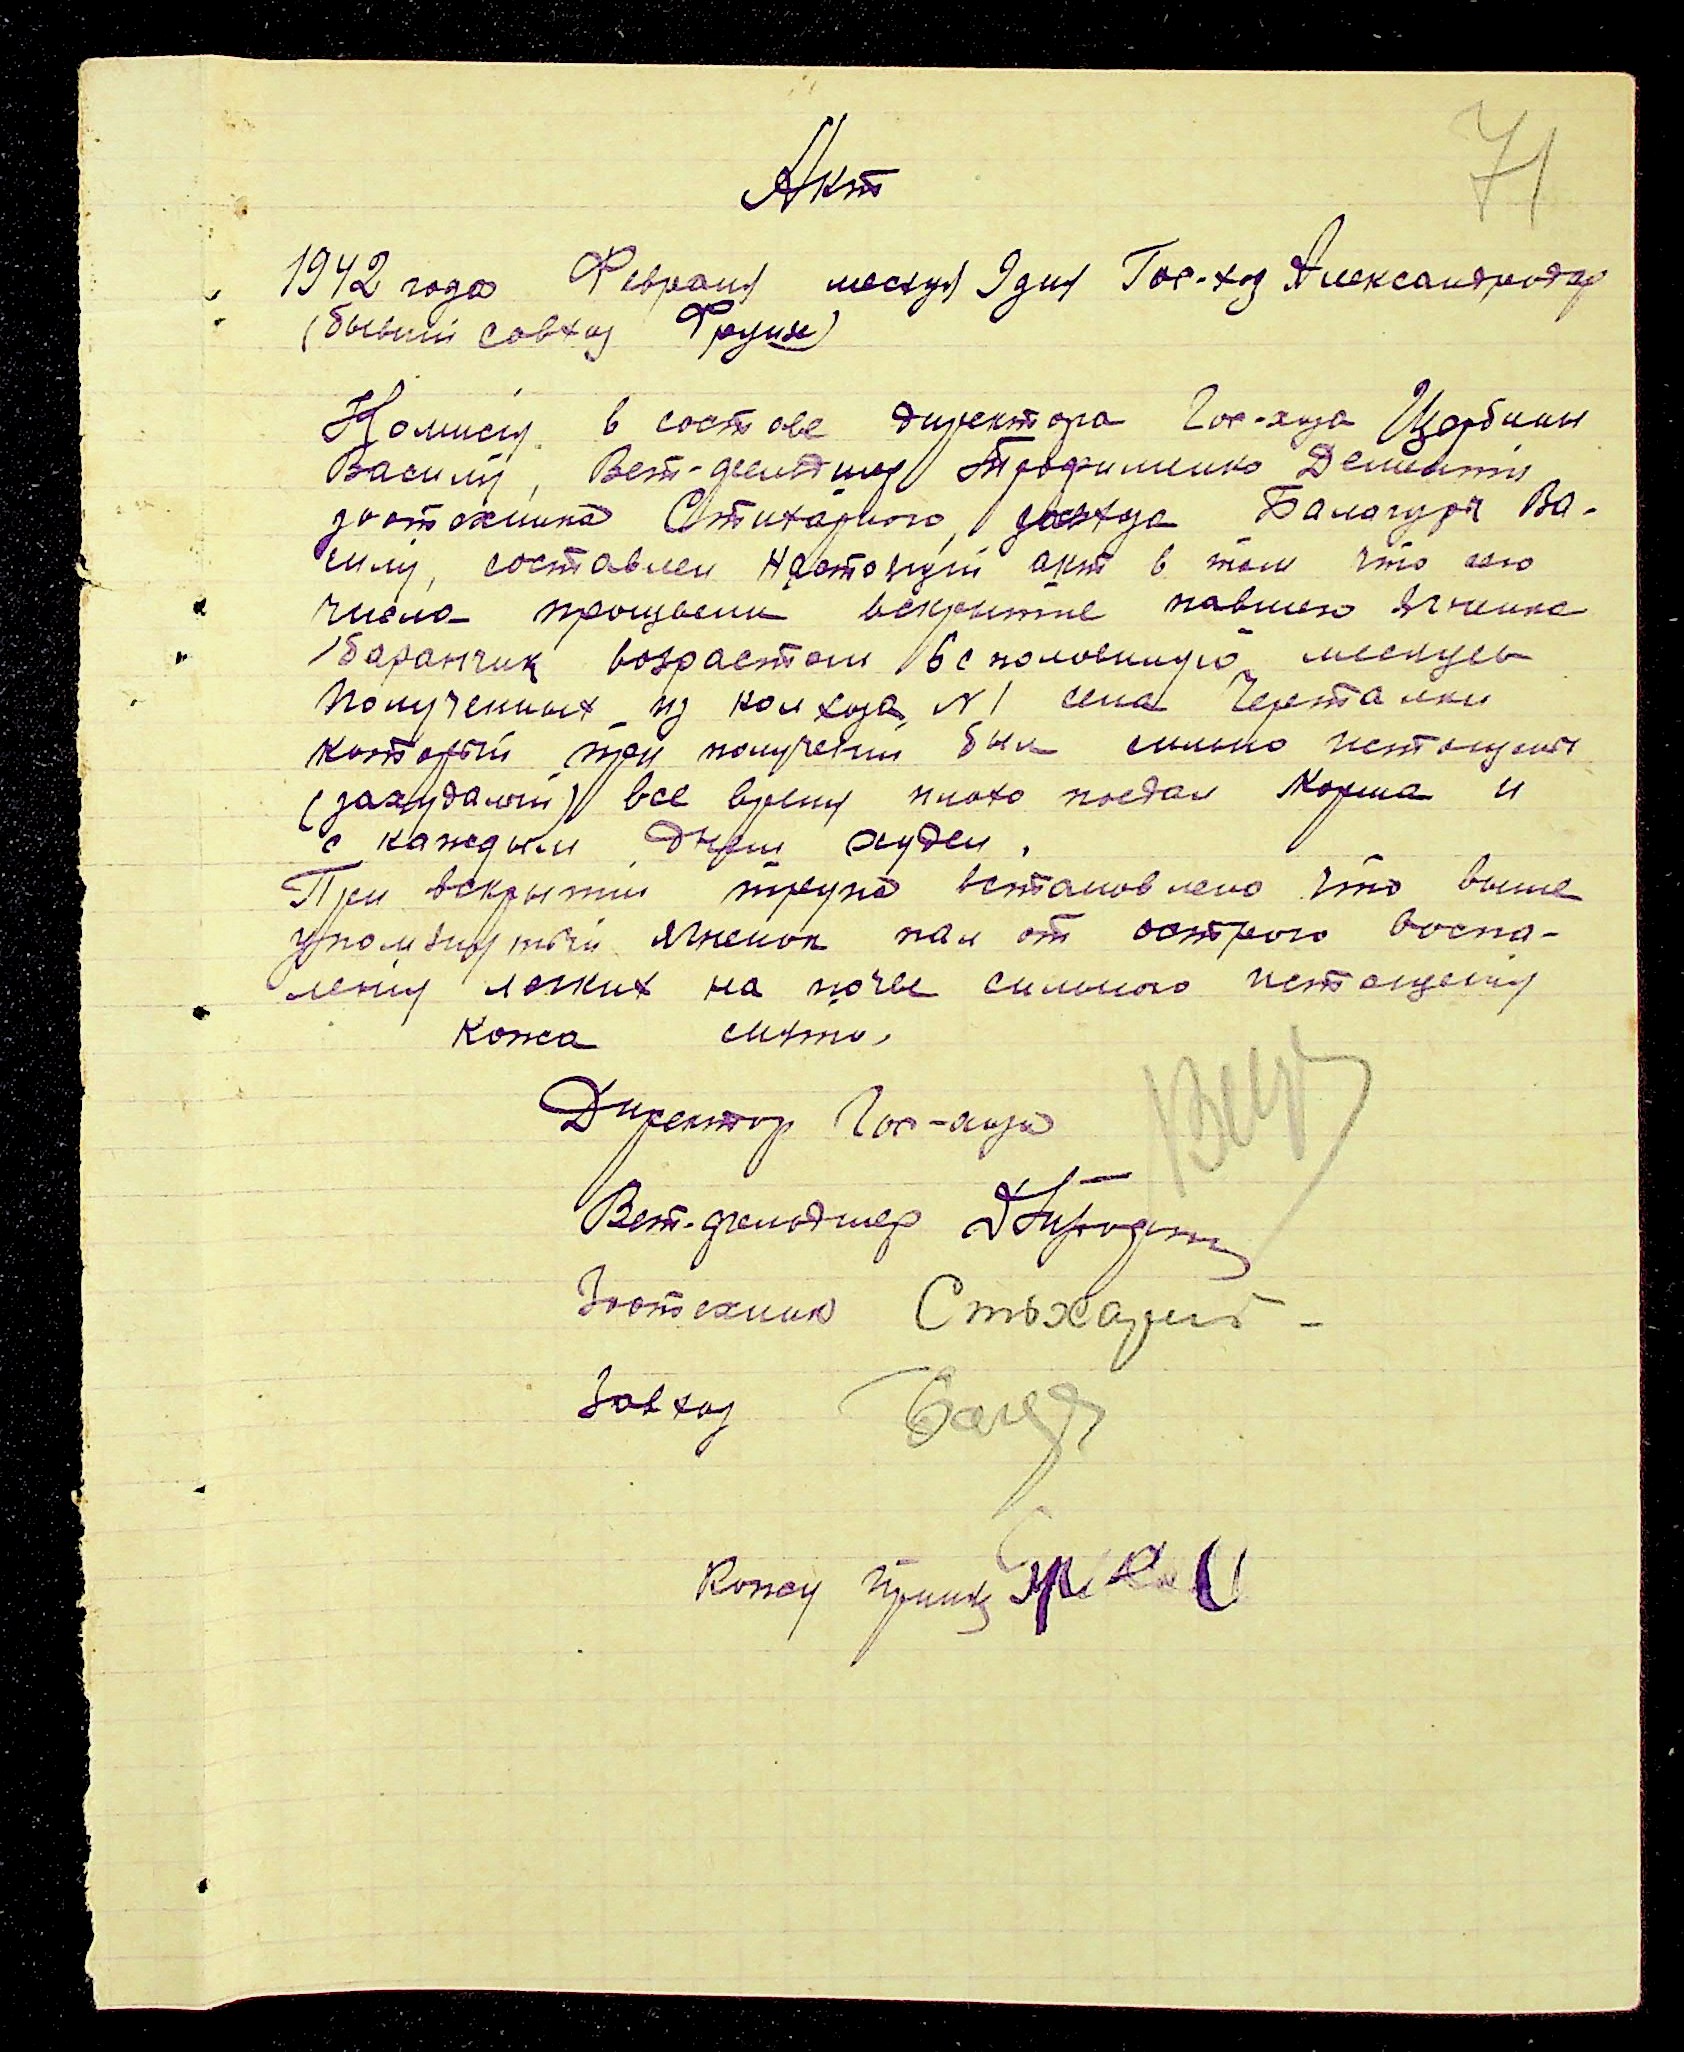 71
Акт
1942 года Февраля месяця 9 дня Гос-хоз Александродар
(бывший совхоз Фрунзе)
Комисия в составе директора Гос-хоза Щербины
Василия, Вет-фельдшер Трофименко Дементия
зоотехника Стихарного, завхоза Балагура Ва-
силия, составлен настоящий акт в том что сего
числа произвели вскрытие павшего ягненка
/баранчик возрастом 6 с половиною месяцев
полученных из колхоза N 1 села Черталки
который при получении был сильно истощеный
(захудалый) все время плохо поедал корма и
с каждым днем худел.
При вскрытии трупа встановлено что выше
упомянутый ягненок пал от острого воспа-
ления легких на почве сильного истощения
Кожа снята.
Директор Гос-хоза
Вет-фельдшер
Зоотехник Стыхарный -
Завхоз
Кожу принял